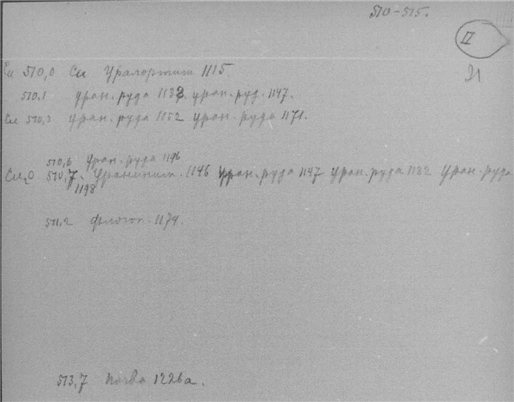 510-515.
II
21
Cu 510,0 Cu Уралортит 1115
510,1 уран. руда 1132. уран. руд. 1147.
510,3 уран. руда 1152 уран. руда 1171.
510,6 Уран. руда 1196
Cu₂O 510,7. Уранинит. 1146 уран. руда 1147 уран. руда 1132 уран. руда
1198
511,2 флогоп. 1174.
513,7 почва 1226а.